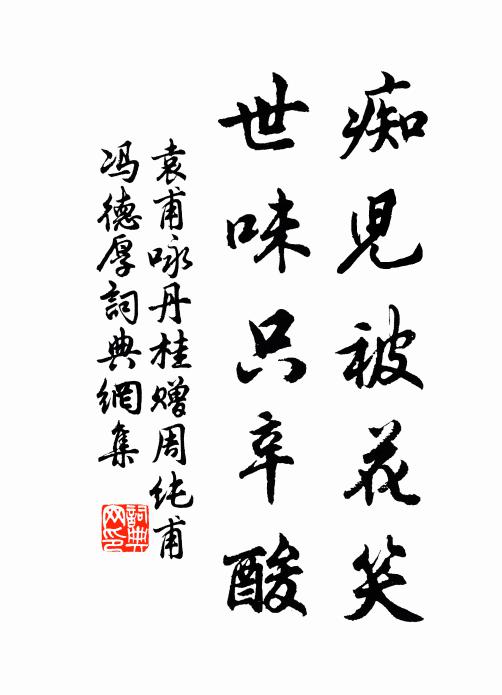 痴児被花笑
世味只辛酸
袁甫咏丹桂赠周纯甫
冯德厚詞典網集
詞典网印